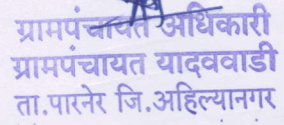 ग्रामपंचायत अधिकारी
ग्रामपंचायत यादववाडी
ता.पारनेर जि.अहिल्यानगर